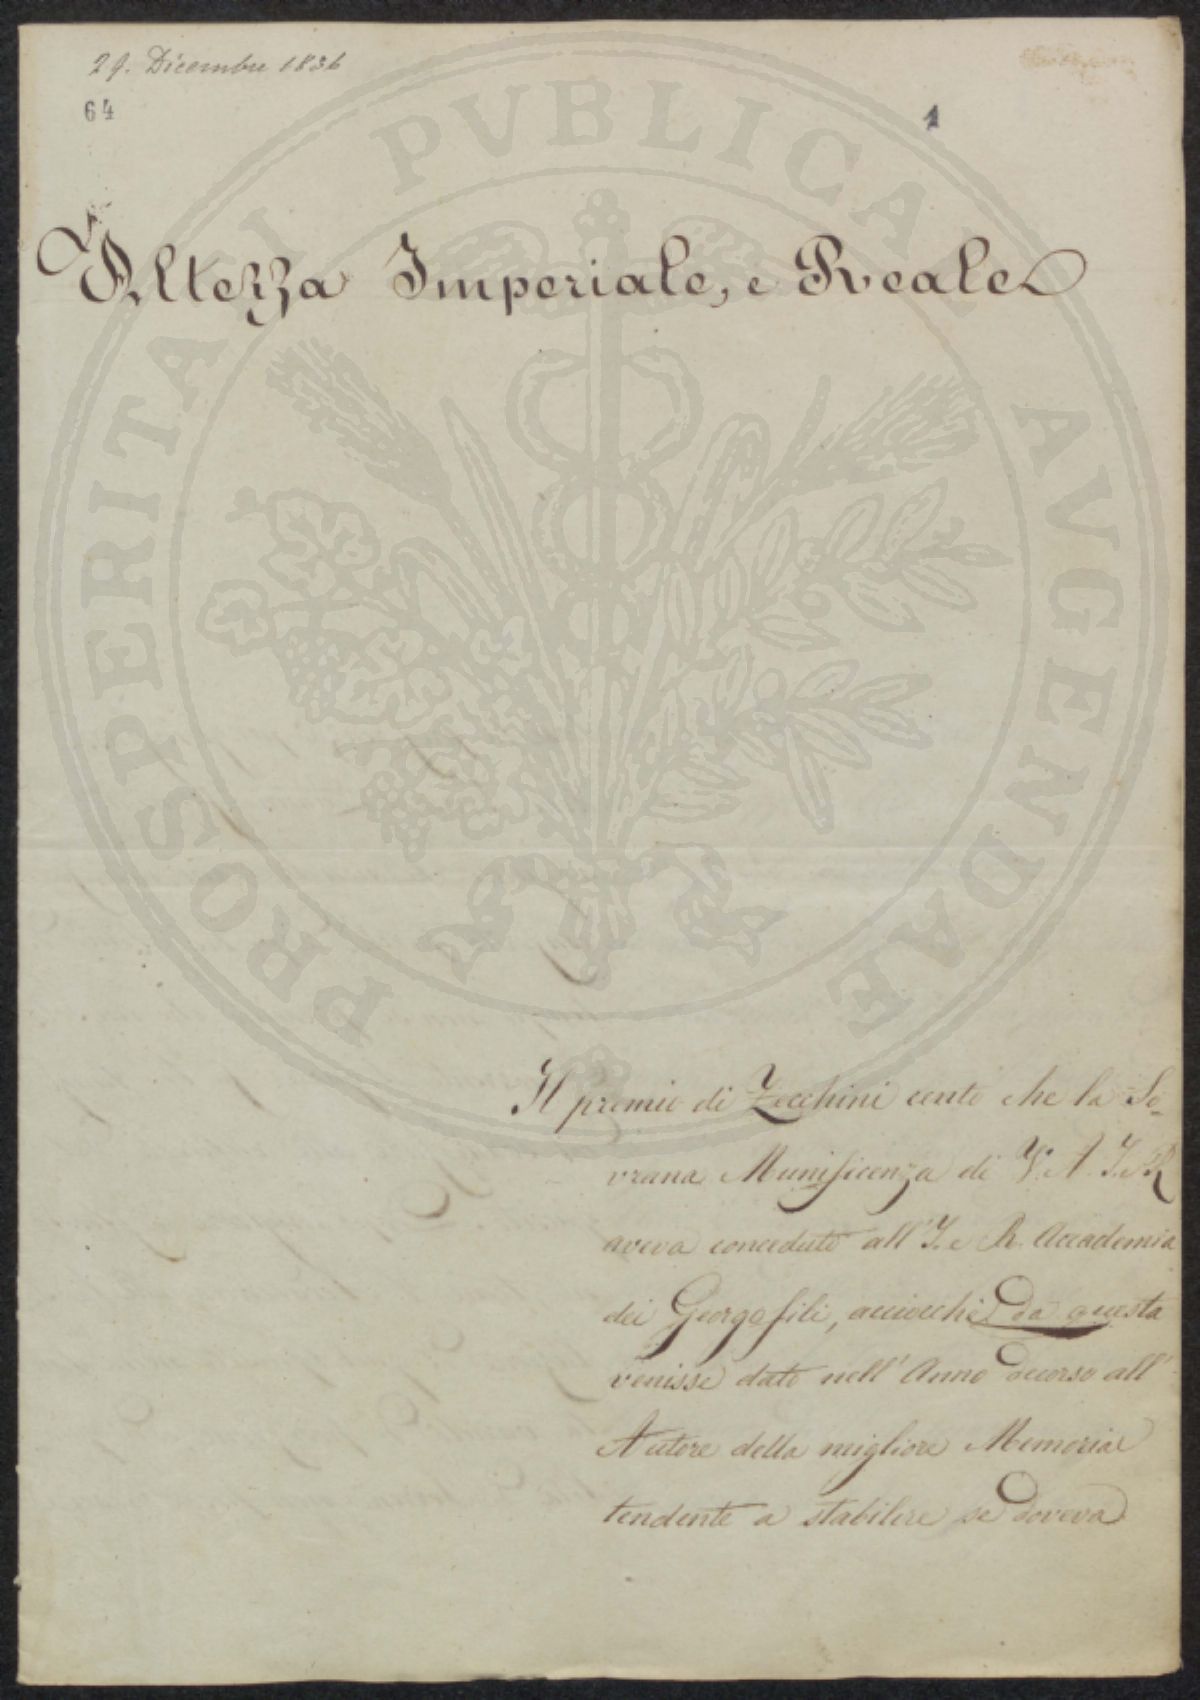 29. Dicembre 1836
64
1
PROSPERITATI PVBLICAE AVGENDAE
Altezza Imperiale, e Reale
Il premio di Zecchini cento che la So-
vrana Munificenza di V. A. I. e R
aveva conceduto all' I. e R. Accademia
dei Georgofili, acciocchè da questa
venisse dato nell' Anno decorso all'
Autore della migliore Memoria
tendente a stabilire se doveva